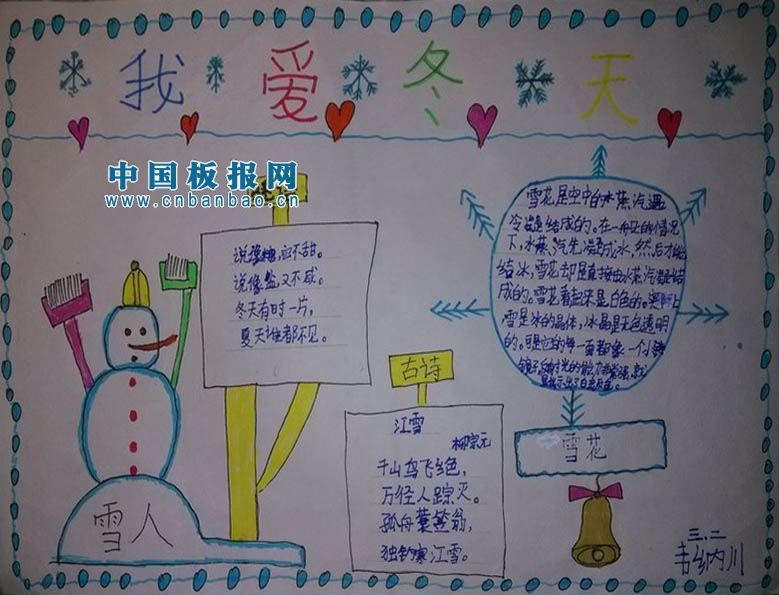 我爱冬天
中国板报网
www.cnbanbao.cn
说像糖,它不甜。
说像盐,又不咸。
冬天有时一片,
夏天谁都不见。
雪花是空中的水蒸汽遇
冷凝结成的。在一般的情况
下,水蒸汽先凝成水,然后才能
结冰,雪花却是直接由水蒸汽凝结
成的。雪花看起来是白色的。实际上
雪是冰的晶体,冰晶是无色透明
的。可是它的每一面都象一个小
光的能力非常强,
白色。
雪花
古诗
江雪
柳宗元
千山鸟飞绝,
万径人踪灭。
孤舟蓑笠翁,
独钓寒江雪。
雪人
三.二